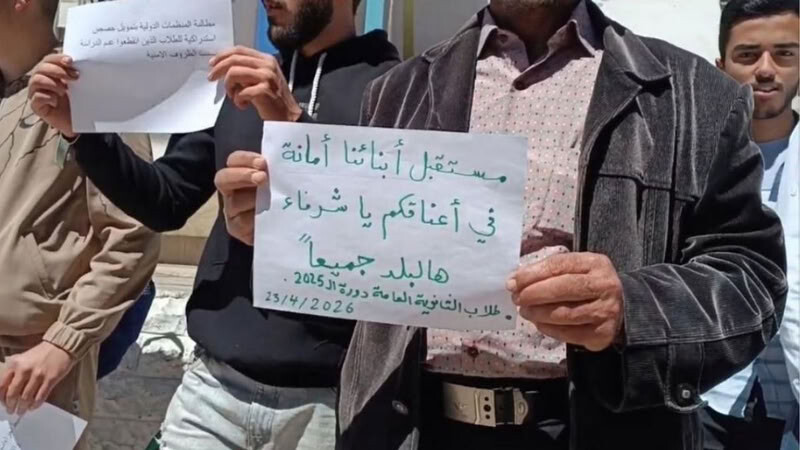 مطالبة المنظمات الدولية بتمويل حصص
استدراكية للطلاب الذين انقطعوا عن الدراسة
بسبب الظروف الامنية
مستقبل أبنائنا أمانة
في أعناقكم يا شرفاء
هالبلد جميعاً
طلاب الثانوية العامة دورة الـ 2025.
23/4/2026